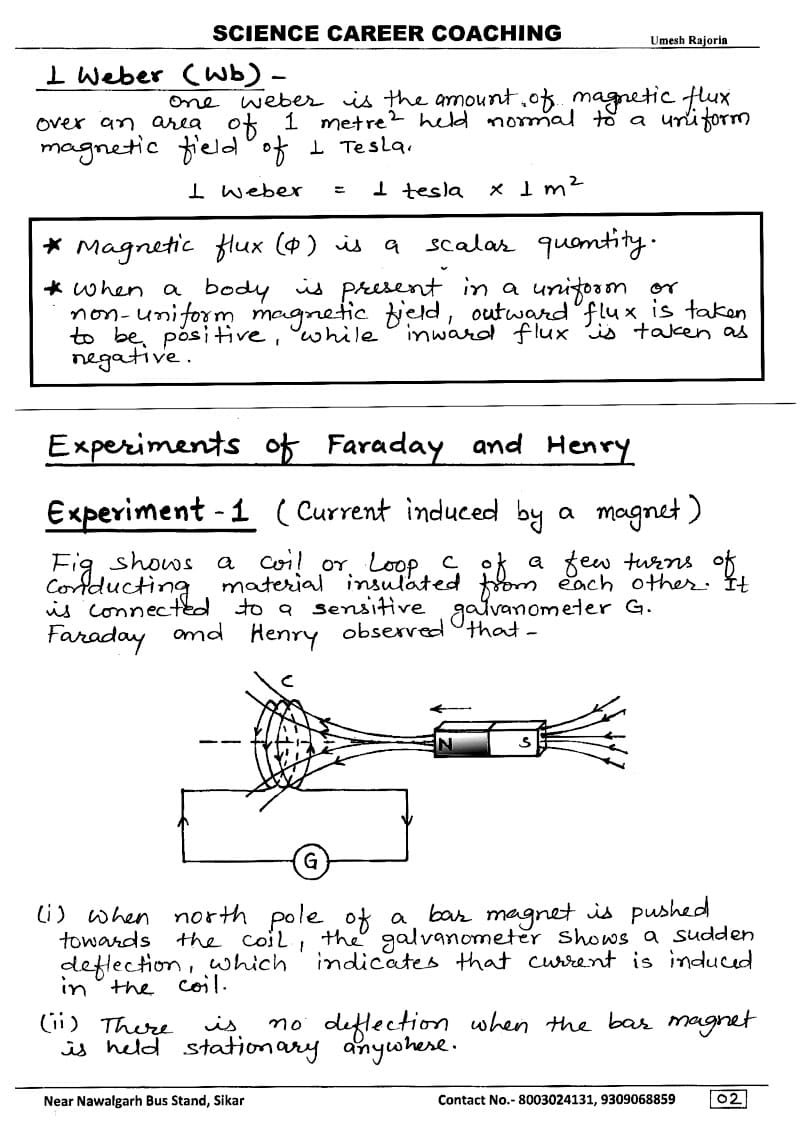 SCIENCE CAREER COACHING
Umesh Rajoria
1 Weber (Wb) -
One weber is the amount of magnetic flux
over an area of 1 metre² held normal to a uniform
magnetic field of 1 Tesla.
1 Weber = 1 tesla × 1 m²
* Magnetic flux (Φ) is a scalar quantity.
* When a body is present in a uniform or
non-uniform magnetic field, outward flux is taken
to be positive, while inward flux is taken as
negative.
Experiments of Faraday and Henry
Experiment - 1 (Current induced by a magnet)
Fig shows a coil or Loop C of a few turns of
conducting material insulated from each other. It
is connected to a sensitive galvanometer G.
Faraday and Henry observed that -
C
N S
G
(i) When north pole of a bar magnet is pushed
towards the coil, the galvanometer shows a sudden
deflection, which indicates that current is induced
in the coil.
(ii) There is no deflection when the bar magnet
is held stationary anywhere.
Near Nawalgarh Bus Stand, Sikar Contact No.- 8003024131, 9309068859 02